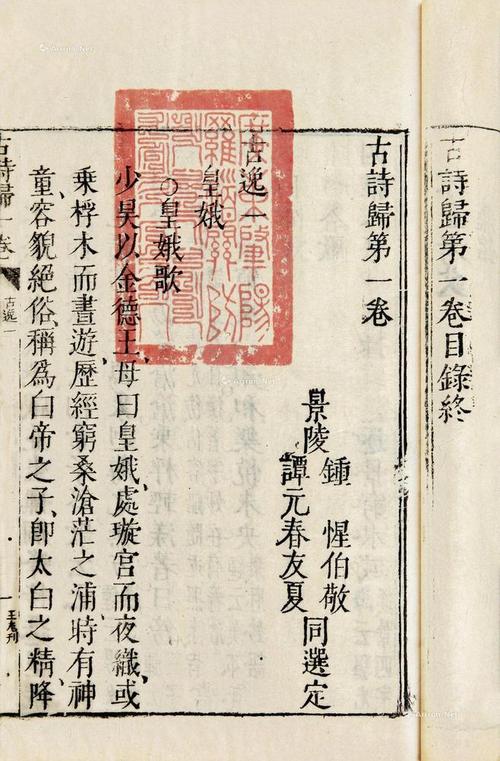 古詩歸第一卷目錄終
古詩歸第一卷
景陵
鍾 惺伯敬
譚元春友夏
同選定
古逸一
皇娥
○皇娥歌
少昊以金德王母曰皇娥處璇宮而夜織或
乘桴木而晝遊歷經窮桑滄茫之浦時有神
童容貌絕俗稱爲白帝之子卽太白之精降
古詩歸一卷
古逸一